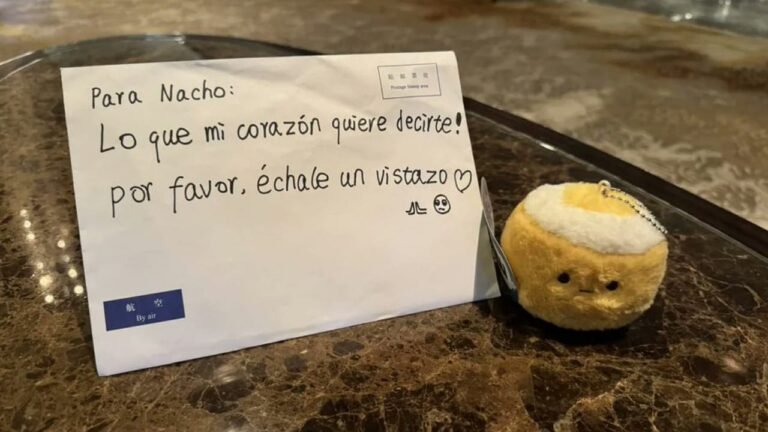 Para Nacho:
Postage Stamp area
Lo que mi corazón quiere decirte!
por favor, échale un vistazo♡
航 空
By air